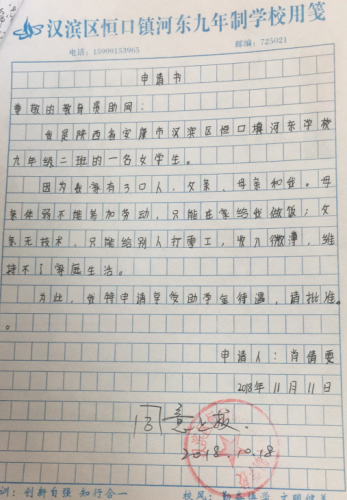 汉滨区恒口镇河东九年制学校用笺
电话：15909153965 邮编：725021
申请书
尊敬的教身员助网：
我是陕西省安康市汉滨区恒口镇河东学校
九年级二班的一名女学生。
因为我家有3口人，父亲、母亲和我。母
亲体弱不能参加劳动，只能在家给我做饭；父
亲无技术，只能给别人打零工，收入微薄，维
持不了家庭生活。
为此，我特申请享受助学金待遇，请批准。
。
申请人：肖倩雯
2018年11月11日
同意上报.
2018.10.18.
训：创新自强 知行合一 校风：